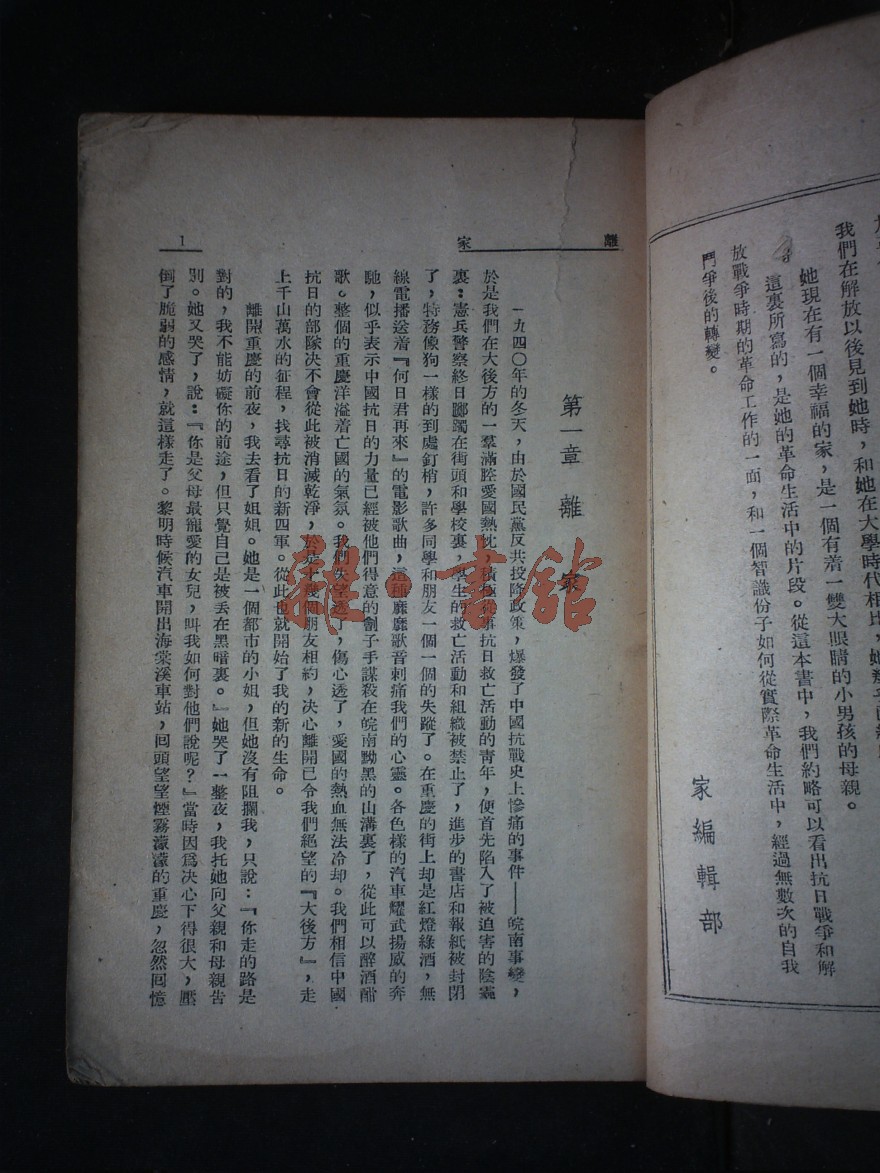 我們在解放以後見到她時，和她在大學時代相比，她
她現在有一個幸福的家，是一個有着一雙大眼睛的小男孩的母親。
這裏所寫的，是她的革命生活中的片段。從這本書中，我們約略可以看出抗日戰爭和解
放戰爭時期的革命工作的一面，和一個智識份子如何從實際革命生活中，經過無數次的自我
鬥爭後的轉變。
家編輯部
離家
第一章 離家
一九四〇年的冬天，由於國民黨反共投降政策，爆發了中國抗戰史上慘痛的事件——皖南事變，
於是我們在大後方的一羣滿腔愛國熱忱，積極從事抗日救亡活動的靑年，便首先陷入了被迫害的陰霾
裏：憲兵警察終日躑躅在街頭和學校裏，學生的救亡活動和組織被禁止了，進步的書店和報紙被封閉
了，特務像狗一樣的到處釘梢，許多同學和朋友一個一個的失蹤了。在重慶的街上却是紅燈綠酒，無
線電播送着『何日君再來』的電影歌曲，這種靡靡歌音刺痛我們的心靈。各色樣的汽車耀武揚威的奔
馳，似乎表示中國抗日的力量已經被他們得意的劊子手謀殺在皖南黝黑的山溝裏了，從此可以醉酒酣
歌。整個的重慶洋溢着亡國的氣氛。我們失望透了，傷心透了，愛國的熱血無法冷却。我們相信中國
抗日的部隊決不會從此被消滅乾淨，於是十幾個朋友相約，决心離開已令我們絕望的『大後方』，走
上千山萬水的征程，找尋抗日的新四軍。從此也就開始了我的新的生命。
離開重慶的前夜，我去看了姐姐。她是一個都市的小姐，但她沒有阻攔我，只說：『你走的路是
對的，我不能妨礙你的前途，但只覺自己是被丟在黑暗裏。』她哭了一整夜，我托她向父親和母親告
別。她又哭了，說：『你是父母最寵愛的女兒，叫我如何對他們說呢？』當時因爲决心下得很大，壓
倒了脆弱的感情，就這樣走了。黎明時候汽車開出海棠溪車站，囘頭望望煙霧濛濛的重慶，忽然囘憶
1
雜·書館